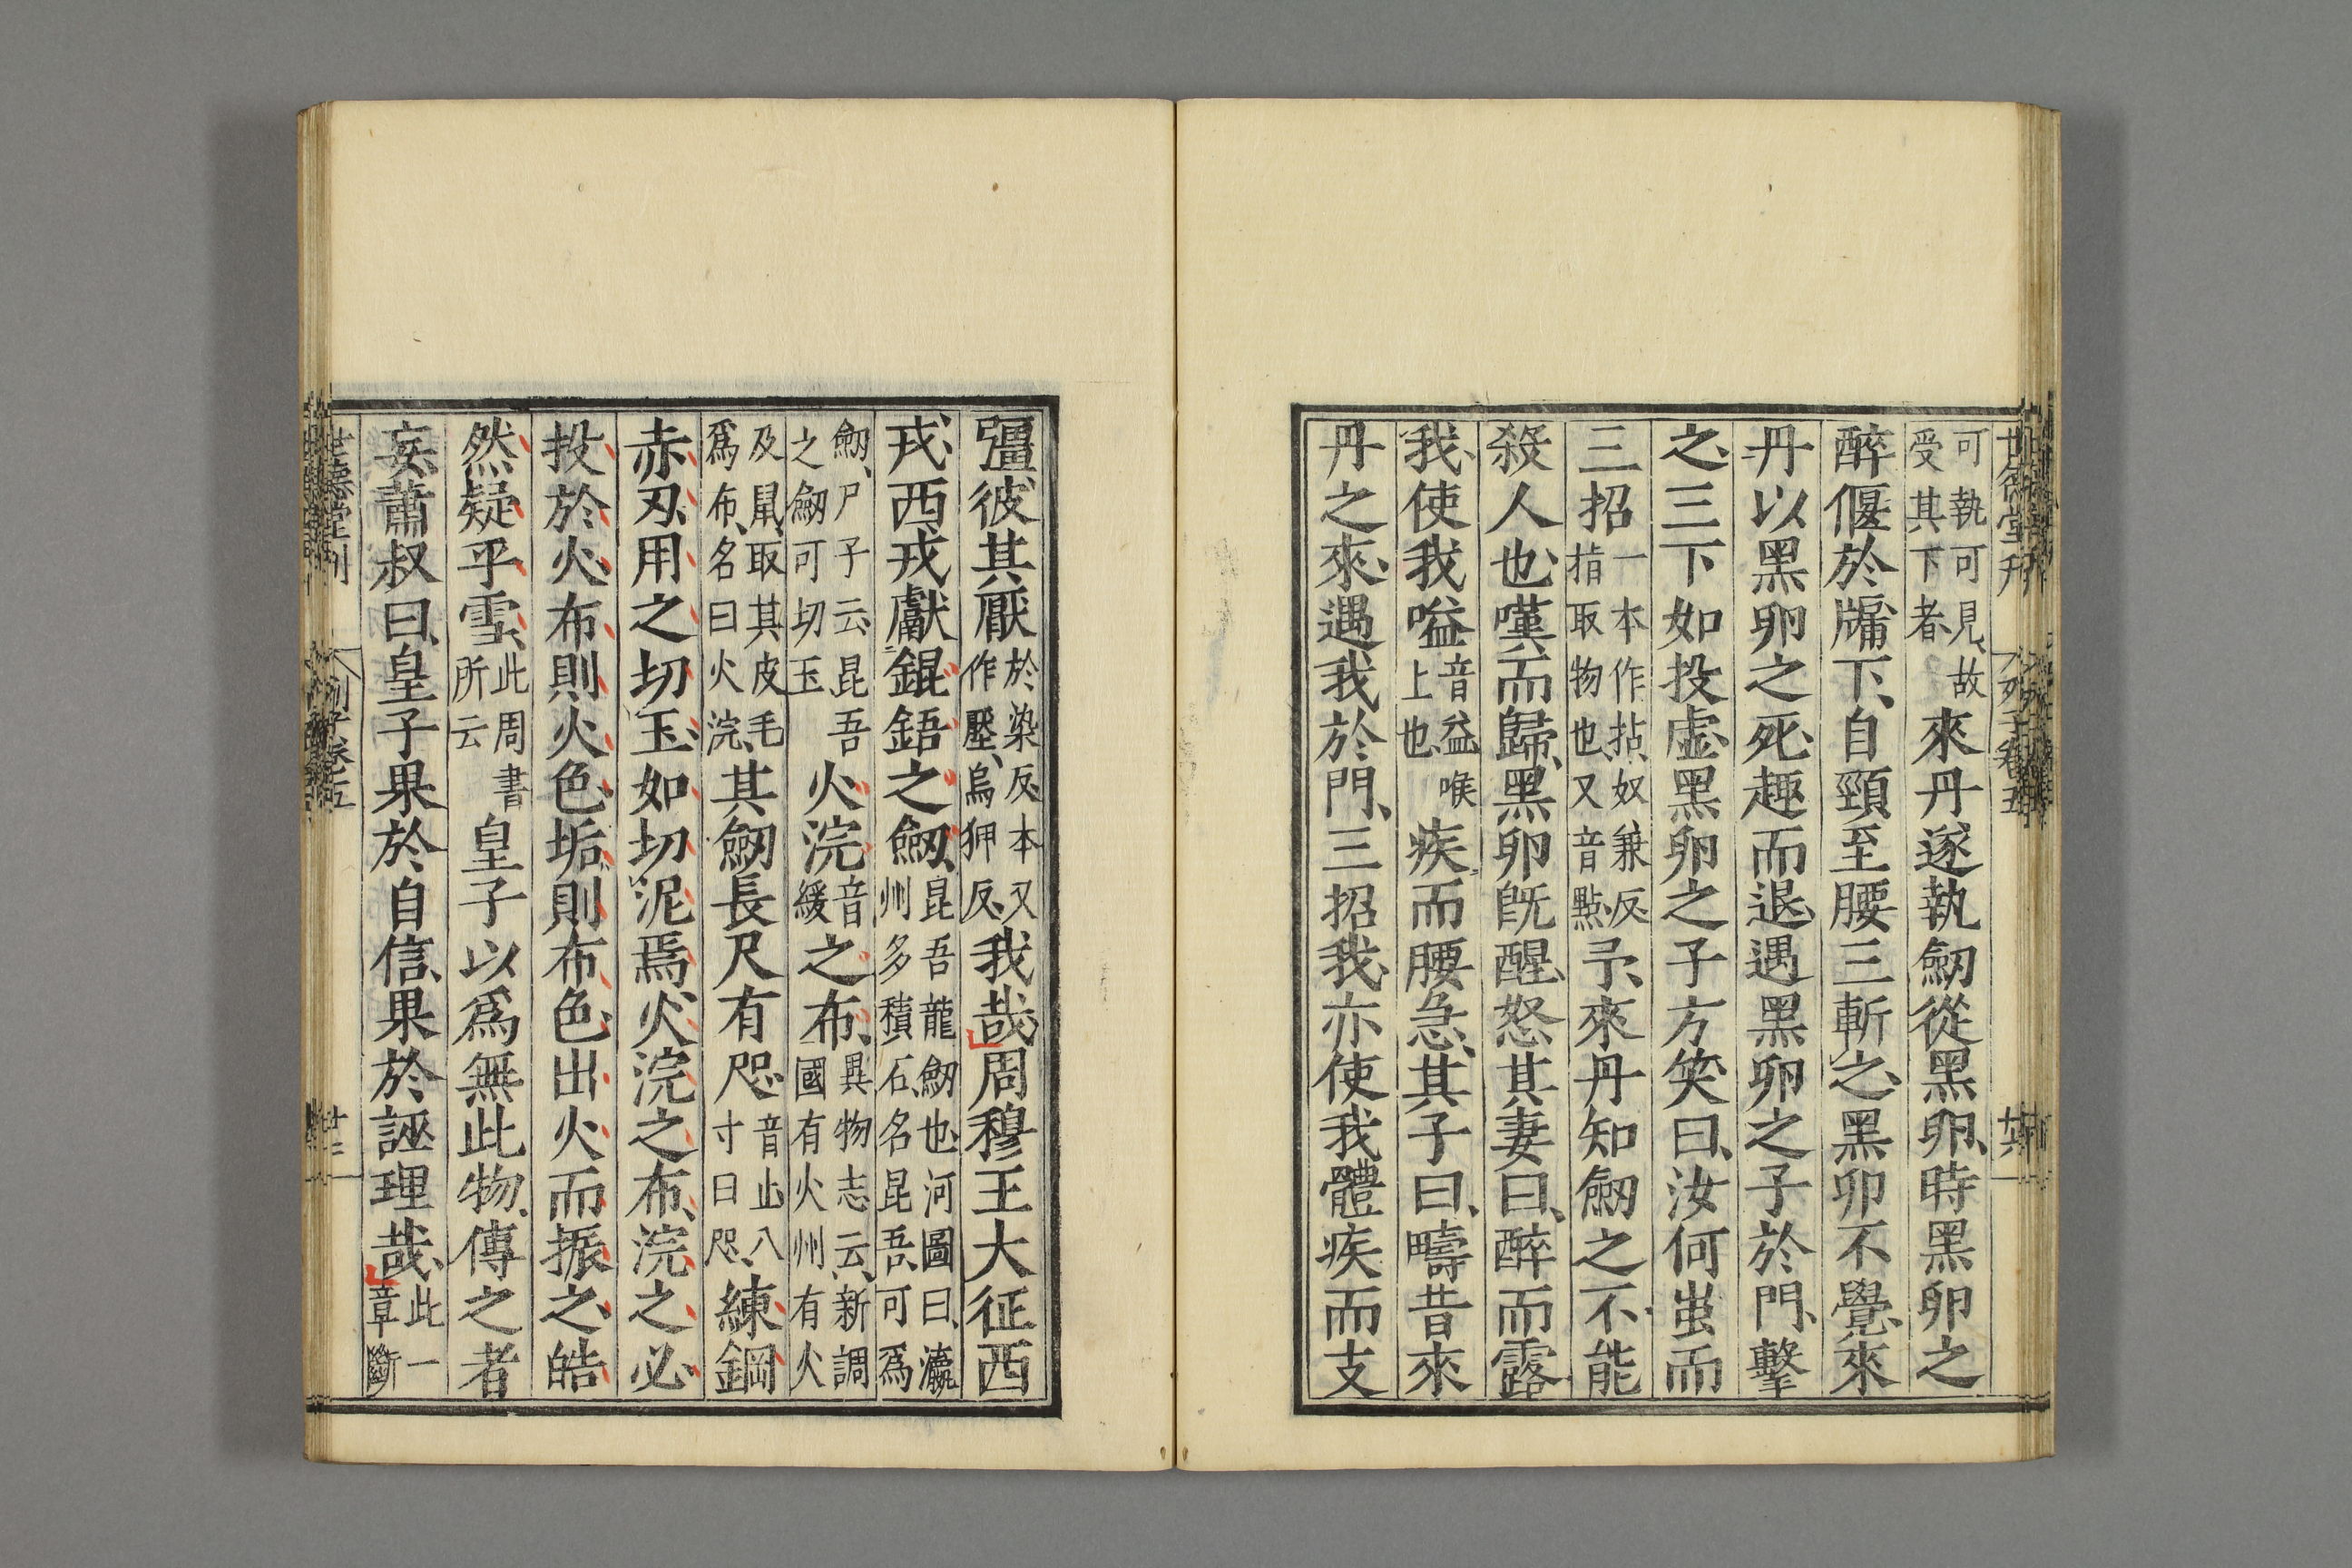 世德堂刊 列子卷五 廿六
可執可見、故受其下者、來丹遂執劒從黑卵、時黑卵之
醉偃於牖下、自頸至腰三斬之、黑卵不覺、來
丹以黑卵之死、趣而退、遇黑卵之子於門、擊
之三下、如投虛、黑卵之子方笑曰、汝何蚩而
三招一本作拈、奴兼反、指取物也、又音點、予、來丹知劒之不能
殺人也、嘆而歸、黑卵旣醒、怒其妻曰、醉而露
我、使我嗌音益喉上也、疾而腰急、其子曰、疇昔來
丹之來、遇我於門、三招我、亦使我體疾而支
彊、彼其厭於染反、本又作壓、烏狎反、我哉、周穆王大征西
戎、西戎獻錕鋙之劒、昆吾龍劒也、河圖曰、瀛州多積石、名昆吾、可爲
劒、尸子云、昆吾之劒可切玉火浣音緩之布、異物志云、新調國有火州、有火
及鼠、取其皮毛爲布、名曰火浣、其劒長尺有咫、音止八寸曰咫、練鋼
赤刃、用之切玉、如切泥焉、火浣之布、浣之必
投於火、布則火色、垢則布色、出火而振之、皓
然疑乎雪、此周書所云皇子以爲無此物、傳之者
妄、蕭叔曰、皇子果於自信、果於誣理哉、此一章斷
世德堂刊 列子卷五